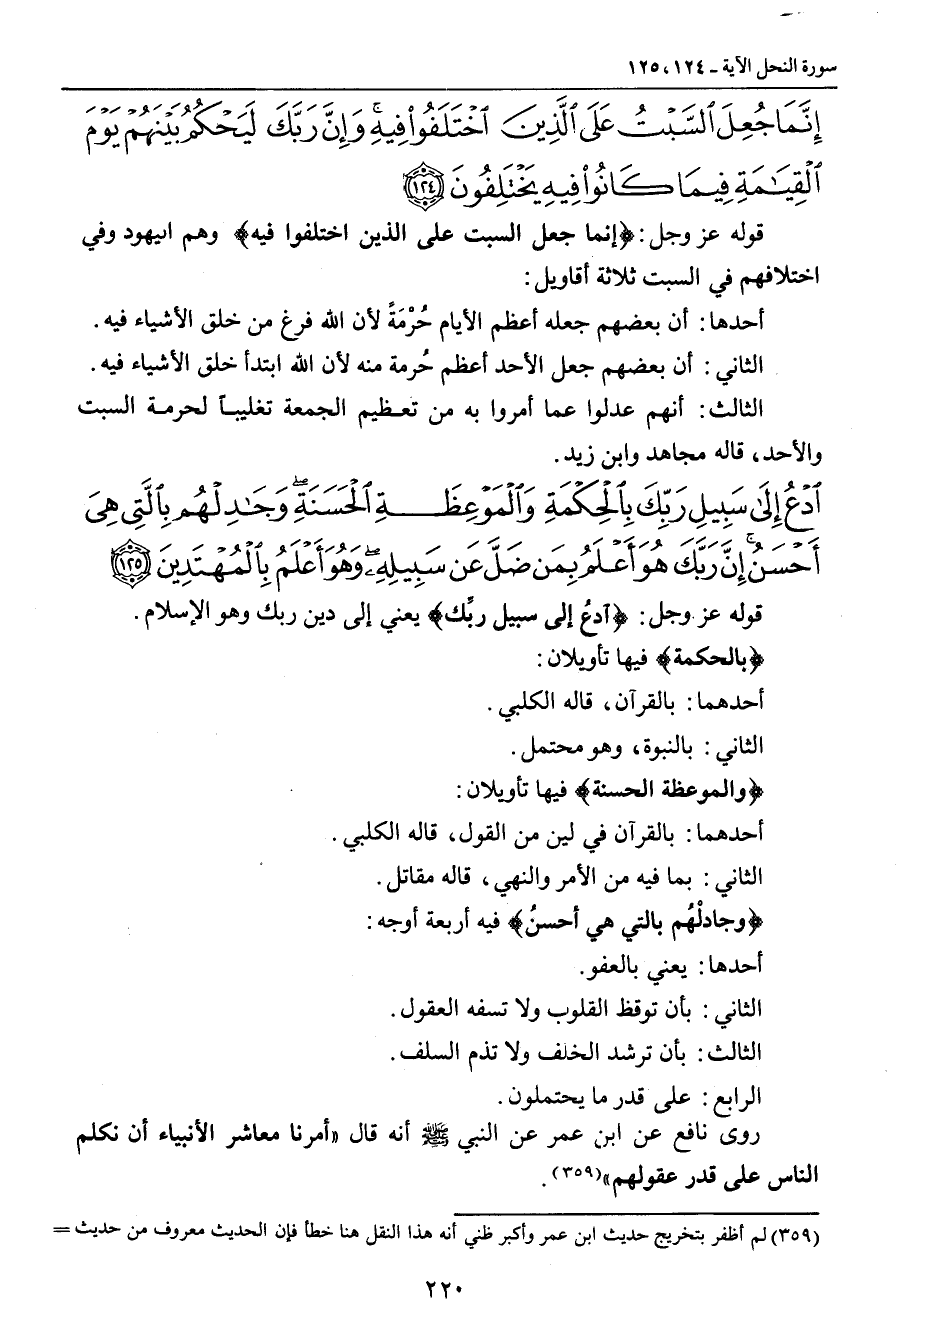 سورة النحل الآية ـ ١٢٤، ١٢٥
إِنَّمَا جُعِلَ السَّبْتُ عَلَى الَّذِينَ اخْتَلَفُوا فِيهِ وَإِنَّ رَبَّكَ لَيَحْكُمُ بَيْنَهُمْ يَوْمَ
الْقِيَامَةِ فِيمَا كَانُوا فِيهِ يَخْتَلِفُونَ ﴿١٢٤﴾
قوله عز وجل: ﴿إنما جعل السبت على الذين اختلفوا فيه﴾ وهم اليهود وفي
اختلافهم في السبت ثلاثة أقاويل:
أحدها: أن بعضهم جعله أعظم الأيام حُرْمَةً لأن الله فرغ من خلق الأشياء فيه.
الثاني: أن بعضهم جعل الأحد أعظم حُرمة منه لأن الله ابتدأ خلق الأشياء فيه.
الثالث: أنهم عدلوا عما أمروا به من تعظيم الجمعة تغليباً لحرمة السبت
والأحد، قاله مجاهد وابن زيد.
ادْعُ إِلَىٰ سَبِيلِ رَبِّكَ بِالْحِكْمَةِ وَالْمَوْعِظَةِ الْحَسَنَةِ ۖ وَجَادِلْهُم بِالَّتِي هِيَ
أَحْسَنُ ۚ إِنَّ رَبَّكَ هُوَ أَعْلَمُ بِمَن ضَلَّ عَن سَبِيلِهِ ۖ وَهُوَ أَعْلَمُ بِالْمُهْتَدِينَ ﴿١٢٥﴾
قوله عز وجل: ﴿آدعُ إلى سبيل ربِّك﴾ يعني إلى دين ربك وهو الإسلام.
﴿بالحكمة﴾ فيها تأويلان:
أحدهما: بالقرآن، قاله الكلبي.
الثاني: بالنبوة، وهو محتمل.
﴿والموعظة الحسنة﴾ فيها تأويلان:
أحدهما: بالقرآن في لين من القول، قاله الكلبي.
الثاني: بما فيه من الأمر والنهي، قاله مقاتل.
﴿وجادلْهُم بالتي هي أحسنُ﴾ فيه أربعة أوجه:
أحدها: يعني بالعفو.
الثاني: بأن توقظ القلوب ولا تسفه العقول.
الثالث: بأن ترشد الخلف ولا تذم السلف.
الرابع: على قدر ما يحتملون.
روى نافع عن ابن عمر عن النبي ﷺ أنه قال «أمرنا معاشر الأنبياء أن نكلم
الناس على قدر عقولهم»(٣٥٩).
(٣٥٩) لم أظفر بتخريج حديث ابن عمر وأكبر ظني أنه هذا النقل هنا خطأ فإن الحديث معروف من حديث =
٢٢٠